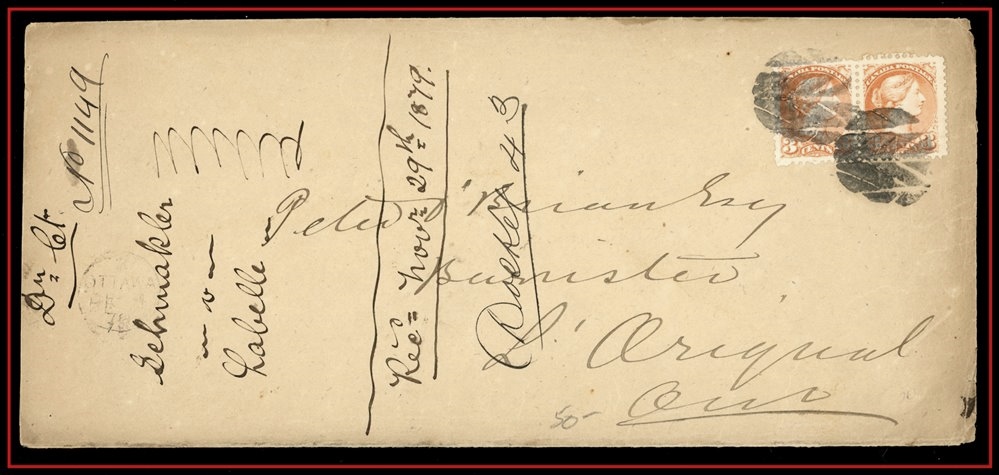 Dn. Ct.
No 1149
Schnakler
v
Labelle
Rec'd Novr 29th 1879.
Docket 43
Peter O'Brian Esq
Barrister
L'Orignal
Ont
50-
CANADA POSTAGE
CANADA POSTAGE
3 CENTS
OTTAWA